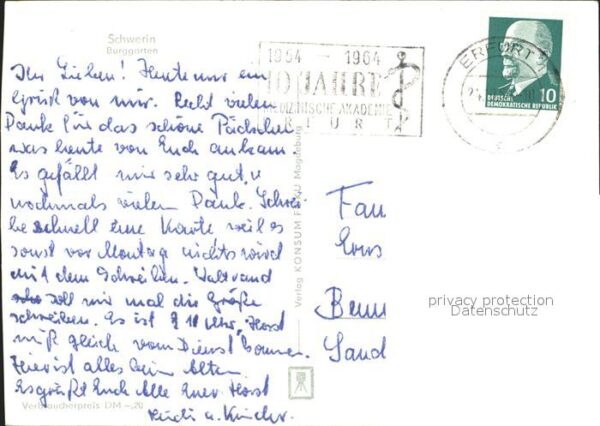 Schwerin
Burggarten
Ihr Lieben! Heute nur ein
Gruß von mir. Recht vielen
Dank für das schöne Päckchen
was heute von Euch ankam
Es gefällt mir sehr gut, u
nochmals vielen Dank. Schrei-
be schnell eine Karte weil es
sonst vor Montag nichts wird
mit dem Schreiben. Waltraud
soll mir mal die Größe
schreiben. Es ist 10 Uhr, Horst
muß gleich vom Dienst kommen.
Hier ist alles beim Alten
Es grüßt Euch Alle Euer Horst
u. Kinder.
Verbraucherpreis DM -,20
Verlag KONSUM FOTO Magdeburg
1954 - 1964
10 JAHRE
MEDIZINISCHE AKADEMIE
ERFURT
ERFURT
DEUTSCHE
DEMOKRATISCHE REPUBLIK
10
Fau
Sand
privacy protection
Datenschutz